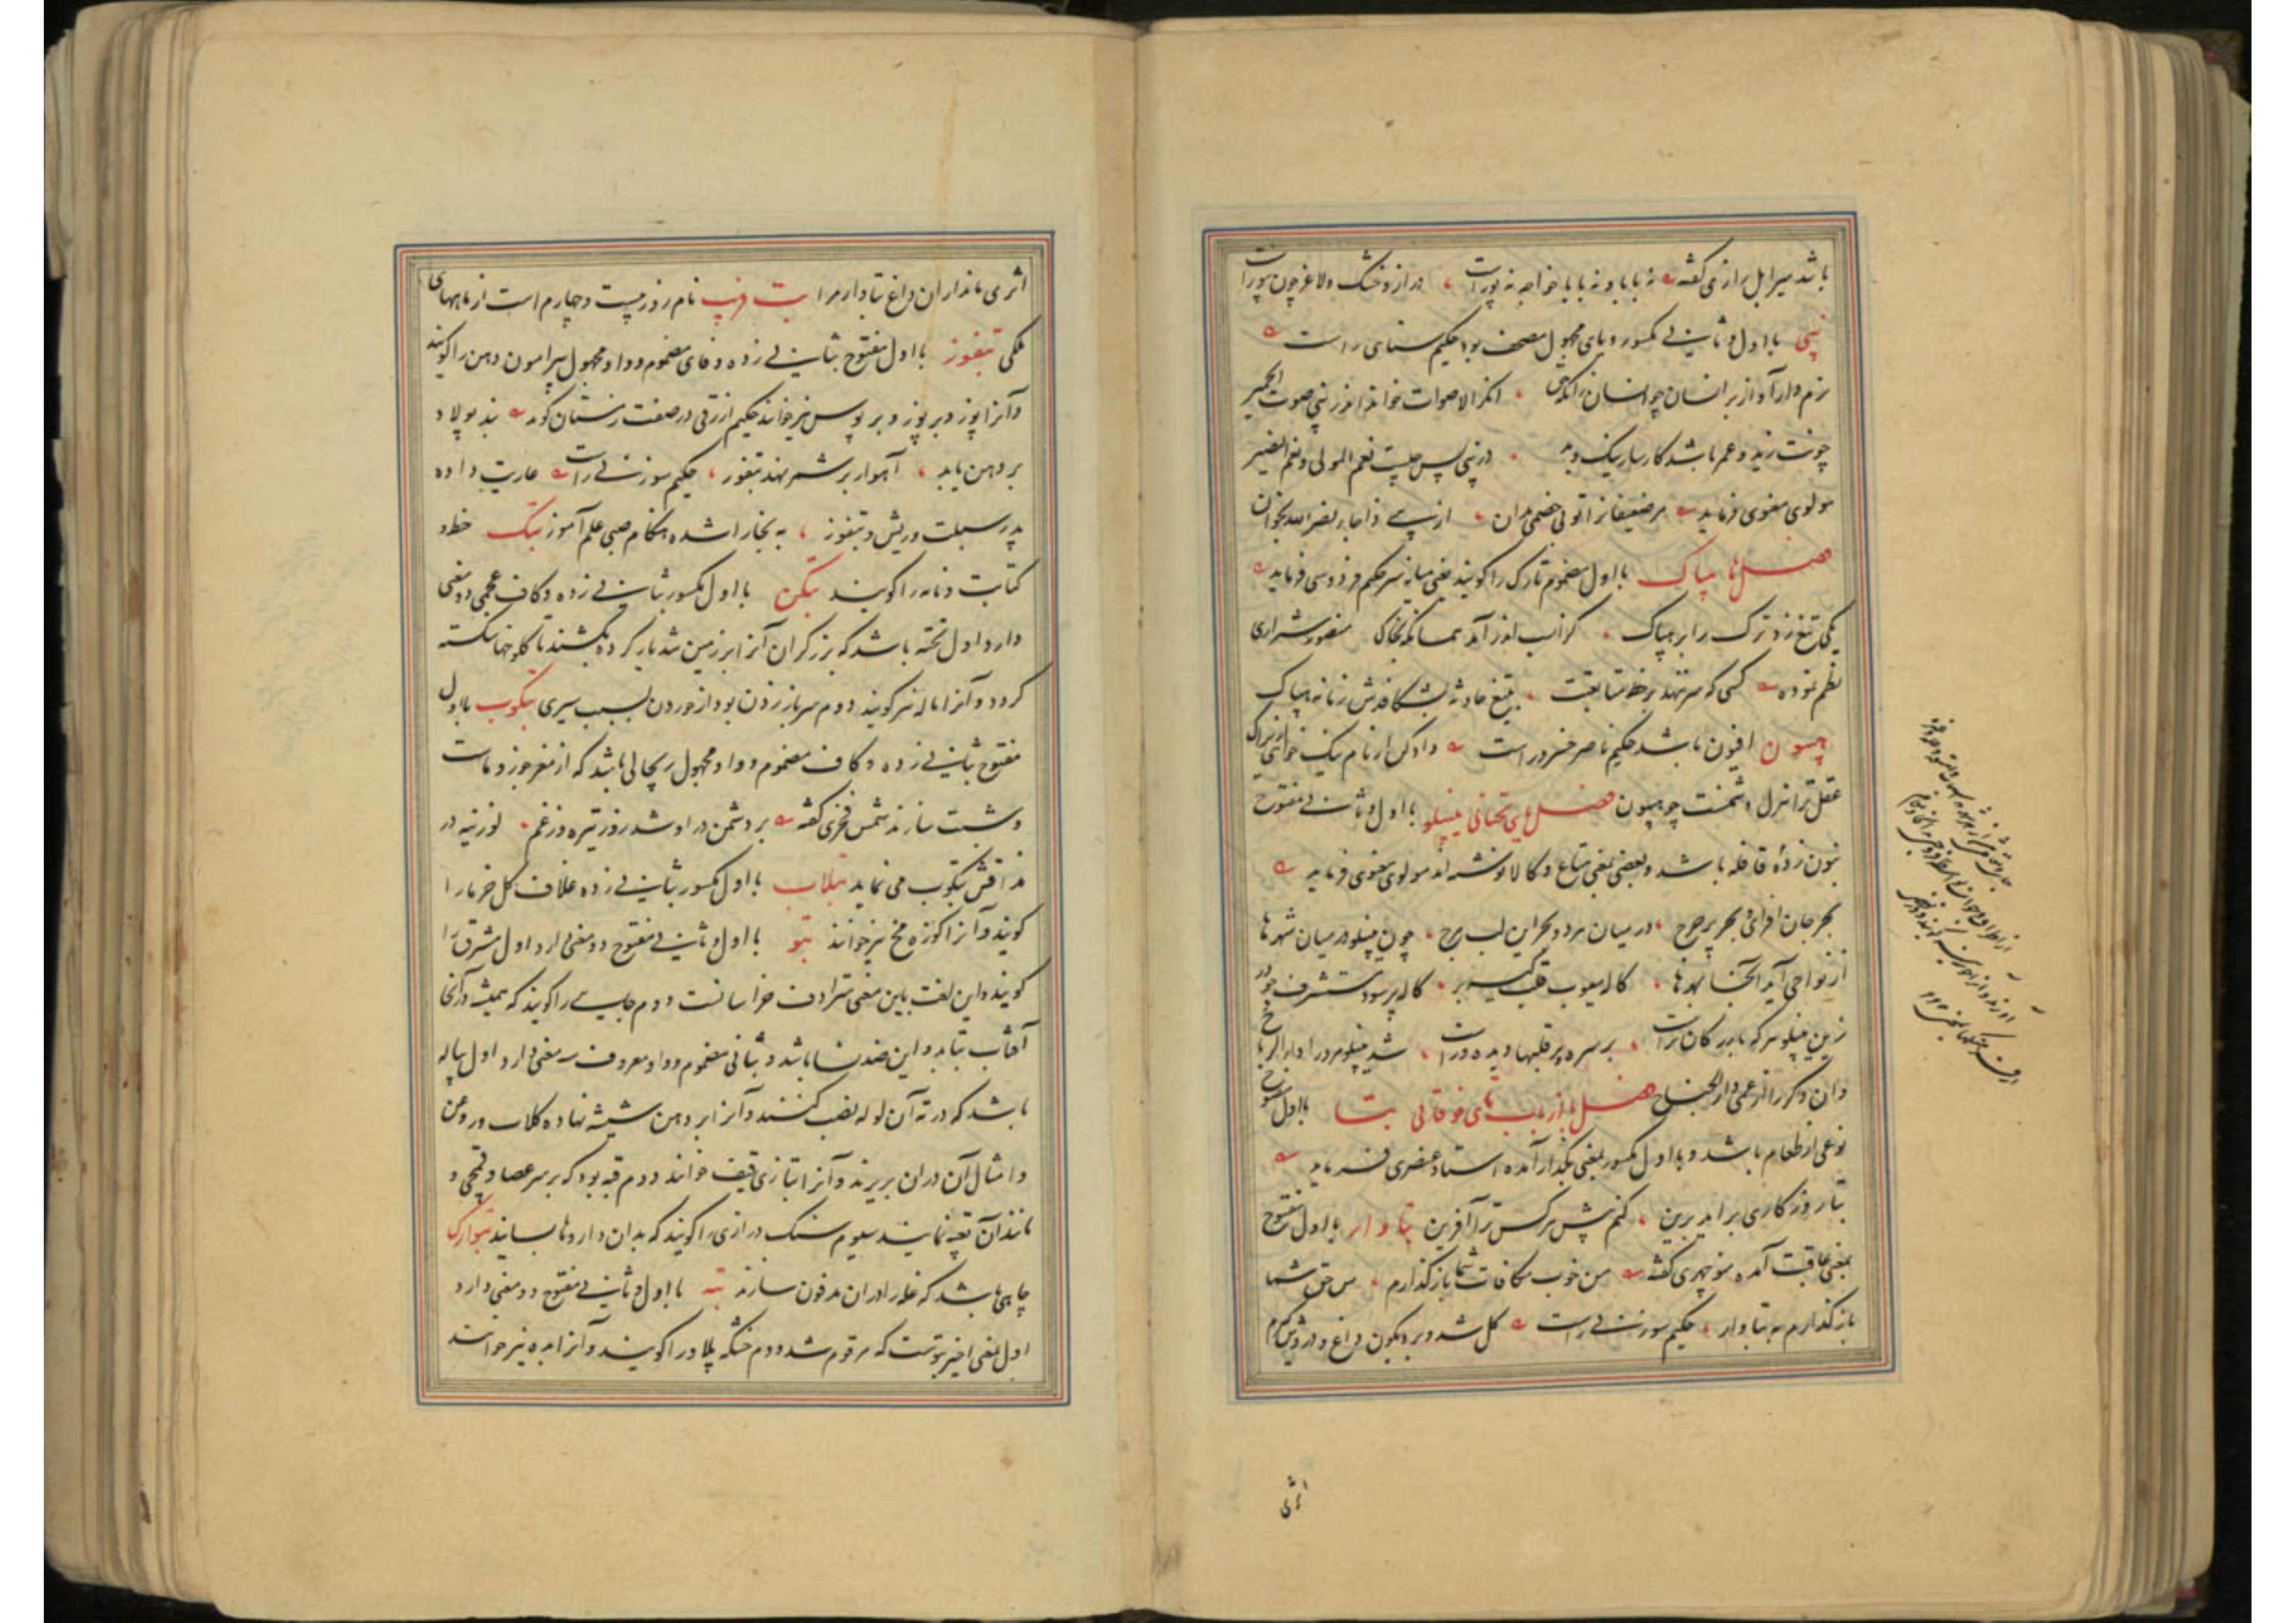 باشد میرابل رازی گفته نه بابا و نه بابا خواجه نه پوراست دراز و خشک و لاغر چون پوراست
نپی با اول و ثانی مکسور و یای مجهول مصحف بود حکیم سنایی راست
نرم دار آواز بر انسان چو انسان زانکه حق انکر الاصوات خواند اندر نپی صوت الحمیر
چونت زید و عمر باشد کارساز نیک و بد در نپی پس چیست نعم المولی و نعم النصیر
مولوی معنوی فرماید مر ضعیفانرا تو بی خصمی مدان از نپی اذا جاء نصر الله بخوان
فصل ها هباک با اول مضموم تارک را گویند یعنی میانه سر حکیم فردوسی فرماید
یکی تیغ زد ترک را بر هباک کز اسب اندر آمد همانگه بخاک منصور شیرازی
نظم نموده کسی که سر ننهد بر خط متابعتت بتیغ حادثه بشکافدش زمانه هباک
هپیون افیون باشد حکیم ناصر خسرو راست دادکن ار نام نیک خواهی ازیراک
عقل ترا نزل دشمنست چو هپیون فصل یای تحتانی یبنلو با اول و ثانی مفتوح
بنون زده قافله باشد و بعضی بمعنی متاع و کالا نوشته اند مولوی معنوی فرماید
بحر جان افزای و بحر پر حرج در میان هر دو بحر این لب مرج چون یپنلو در میان شهرها
از نواحی آید آنجا بهرها کاله معیوب قلب کیسه بر کاله پر سود مستشرف چو در
زین یپنلو هر که بازرگان تراست بر سره بر قلبها دیده وراست شد یپنلو مر ورا دار الرباح
وان دگر را از عمی دار الجناح فصل با از باب تای فوقانی بتا با اول مفتوح
نوعی از طعام باشد و با اول مکسور بمعنی بگذار آمده استاد عنصری فرماید
بتا روزگاری برآید برین کنم پیش هر کس ترا آفرین بتاوار با اول مفتوح
بمعنی عاقبت آمده منوچهری گفته من خوب مکافات شما باز گذارم من حق شما
باز گذارم به بتاوار حکیم سوزنی راست گل شد و بر دیگون داغ و درویش گرم
اثری
اثری ماند از ان داغ بتاوار مرا بت فریب نام روز بیست و چهارم است از ماههای
ملکی بتفوز با اول مفتوح بثانی زده و فای مضموم و واو مجهول پیرامون دهن را گویند
و آنرا پوز و بر پوز و بر پوس نیز خوانند حکیم ازرقی در صفت زمستان گوید بند پولاد
بر دهن یابد آهو ار بر شمر نهد بتفوز حکیم سوزنی راست عاریت داده
پدر سبلت و ریش و بتفوز به بخارا شده هنگام صبی علم آموز بتک خط و
کتابت و نامه را گویند بتکن با اول مکسور بثانی زده و کاف عجمی دو معنی
دارد اول تخته باشد که برزگران آنرا بر زمین شدیار کرده بکشند تا کلوخها شکسته
گردد و آنرا ماله نیز گویند دوم سر باز زدن بود از خوردن بسبب سیری بتکوب با اول
مفتوح بثانی زده و کاف مضموم و واو مجهول ریچالی باشد که از مغز جوز و ماست
و شبت سازند شمس فخری گفته بر دشمن دراو شد روز تیره و ز غم لوزینه در
مذاقش بتکوب می نماید بتلاب با اول مکسور بثانی زده غلاف گل خرما را
گویند و آنرا کوزه مخ نیز خوانند بتو با اول و ثانی مفتوح دو معنی دارد اول مشرق را
گویند و این لغت باین معنی مترادف خراسانست دوم جایی را گویند که همیشه در آنجا
آفتاب بتابد و این ضد نسا باشد و بثانی مضموم و واو معروف سه معنی دارد اول پیاله
باشد که در ته آن لوله نصب کنند و آنرا بر دهن شیشه نهاده گلاب و روغن
و امثال آن دران بریزند و آنرا بتازی قیف خوانند دوم قبه بود که بر سر عصا و قمچی و
مانند آن تعبیه نمایند سیوم سنگ درازی را گویند که بدان داروها بسایند بتوراک
چاهی باشد که غله را دران مدفون سازند بته با اول و ثانی مفتوح دو معنی دارد
اول بمعنی اخیر بتوست که مرقوم شد دوم خشکه پلاو را گویند و آنرا بده نیز خوانند